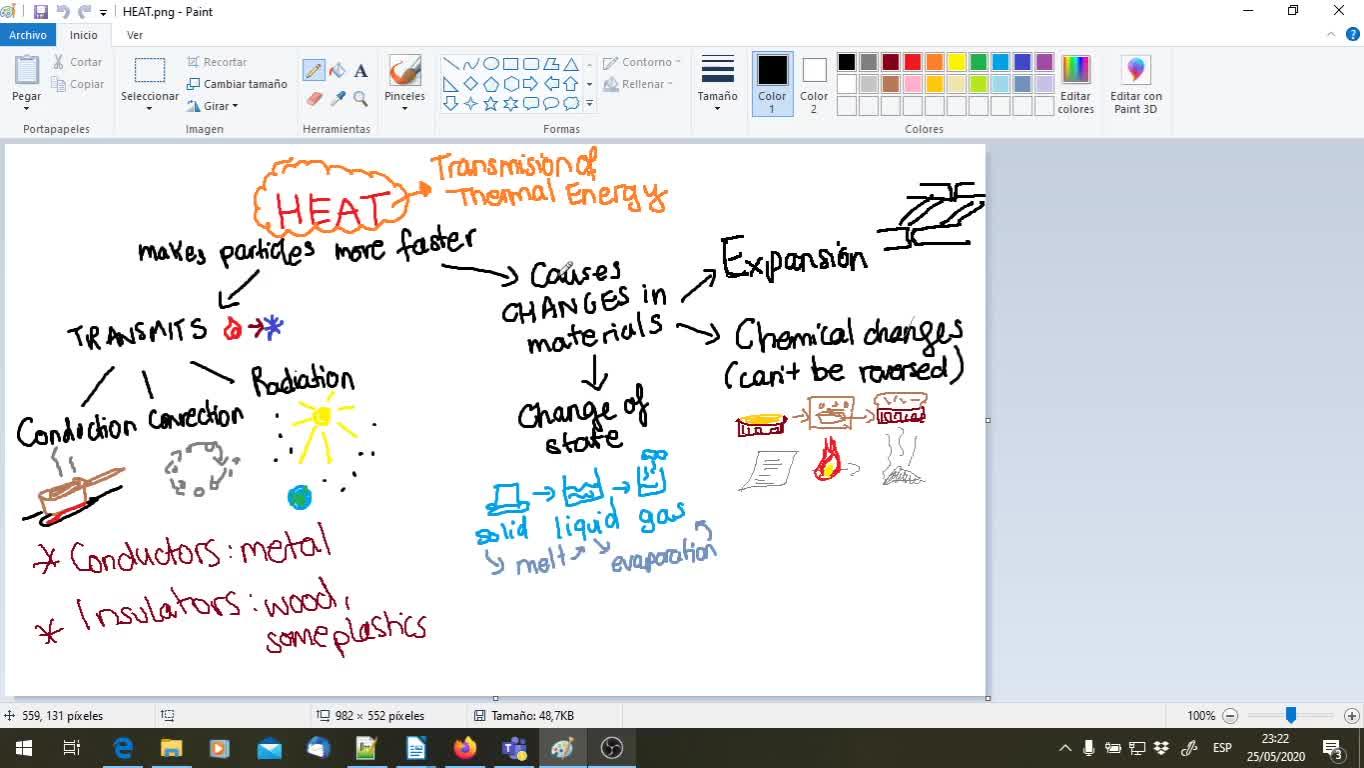 HEAT.png - Paint
Archivo
Inicio
Ver
Pegar
Cortar
Copiar
Portapapeles
Seleccionar
Recortar
Cambiar tamaño
Girar
Imagen
Herramientas
Pinceles
Contorno
Rellenar
Formas
Tamaño
Color 1
Color 2
Editar colores
Colores
Editar con Paint 3D
HEAT
Transmision of
Thermal Energy
makes particles more faster
TRANSMITS
Conduction
Convection
Radiation
* Conductors: metal
* Insulators: wood,
some plastics
Causes
CHANGES in
materials
Expansion
Chemical changes
(can't be reversed)
Change of
state
solid liquid gas
melt evaporation
559, 131 píxeles
982 × 552 píxeles
Tamaño: 48,7KB
100%
ESP
23:22
25/05/2020
3